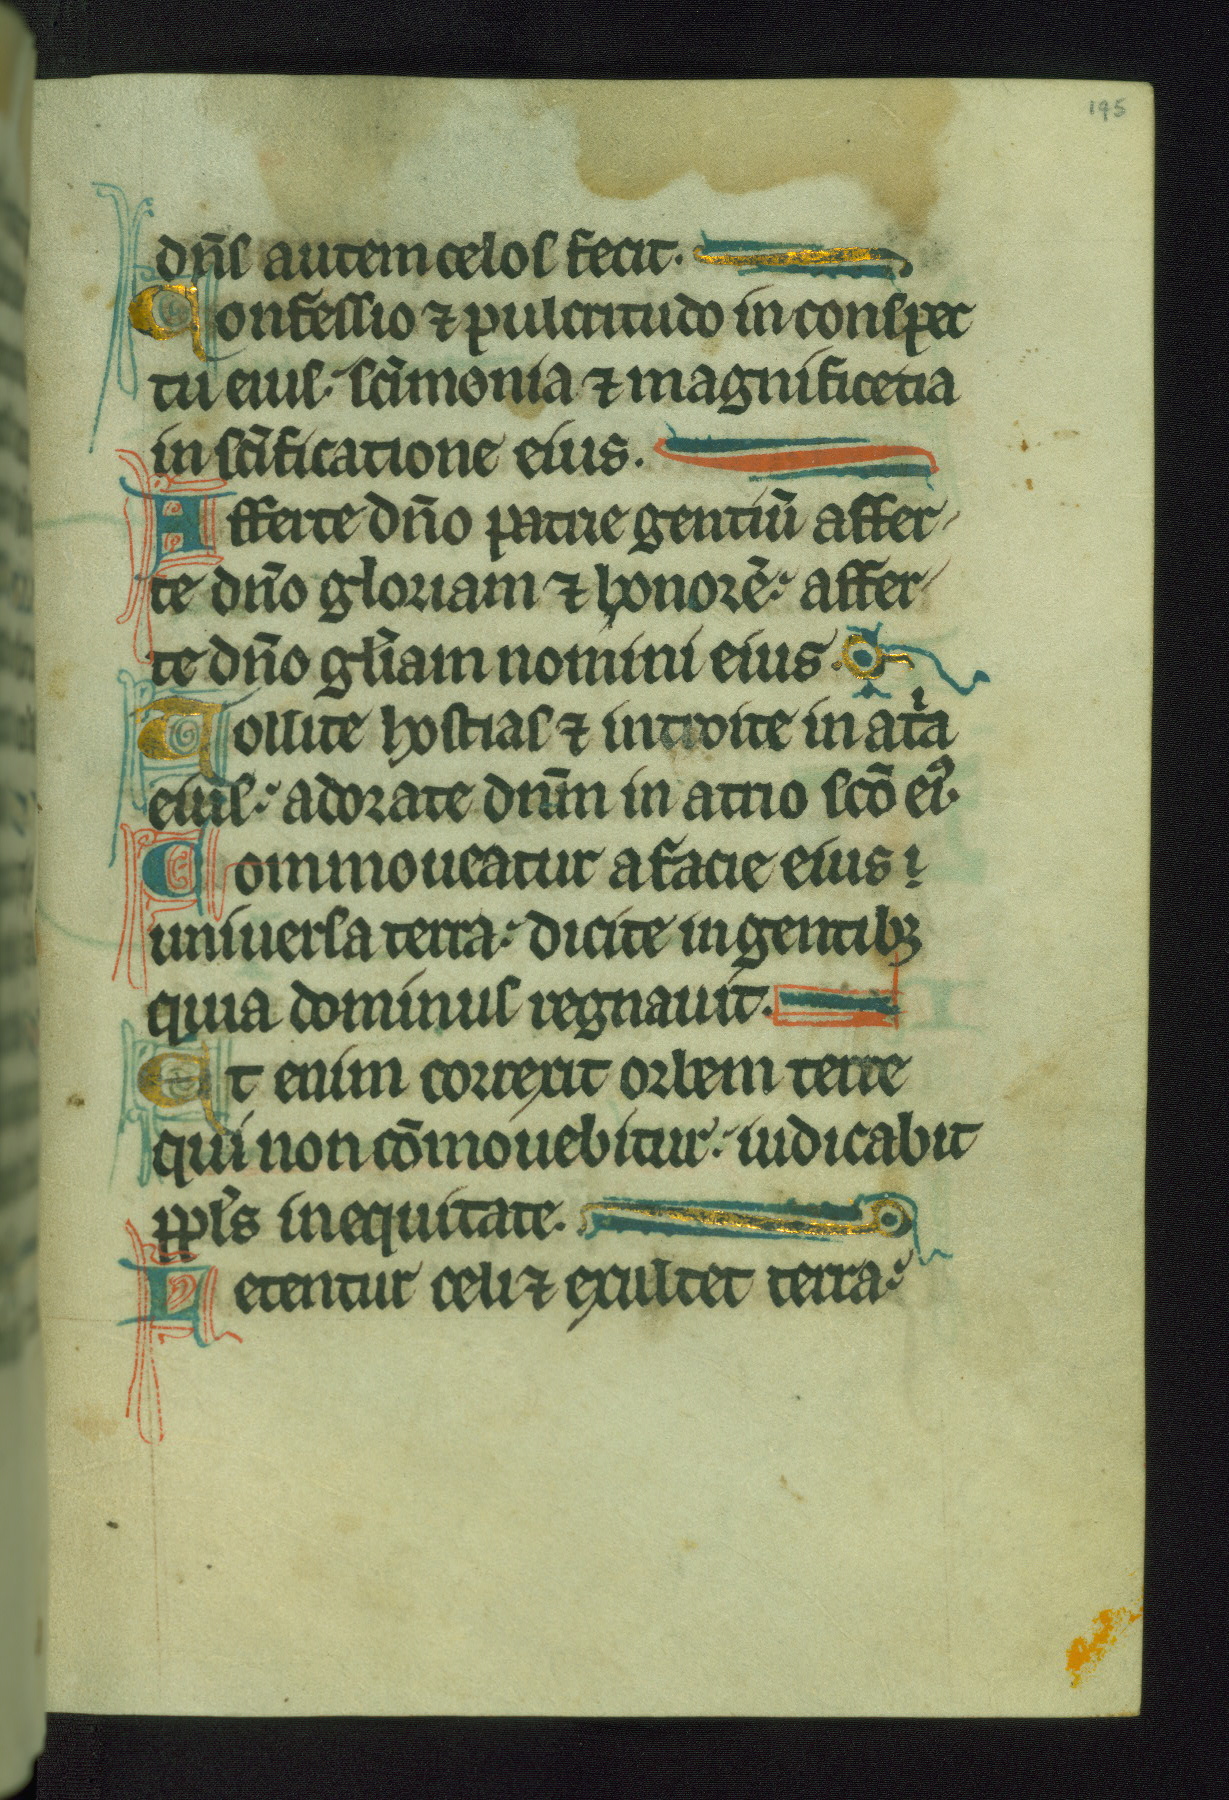 195
dn̄s autem celos fecit.
Confessio ⁊ pulcritudo in conspec
tu eius: sc̄imonia ⁊ magnificētia
in sc̄ificatione eius.
Afferte dn̄o patrie gentiū affer-
te dn̄o gloriam ⁊ honorē: affer-
te dn̄o gl̄iam nomini eius.
Tollite hostias ⁊ introite in at̾a
eius: adorate dn̄m in atrio sc̄o ei᾿
Commoueatur a facie eius
uniuersa terra: dicite in gentibꝫ
quia dominus regnauit.
Et enim correxit orbem terre
qui non cōmouebitur: iudicabit
ppl̄s in equitate.
Letentur celi ⁊ exultet terra: